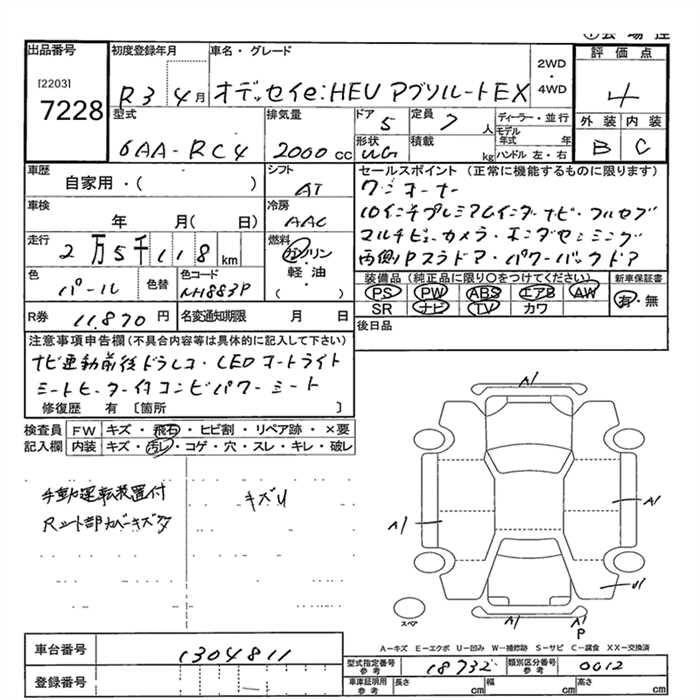 出品番号
[2203]
7228
初度登録年月
R3 4月
車名・グレード
オデッセイe:HEV アブソルートEX
2WD
・
4WD
評価点
4
型式
6AA-RC4
排気量
2000cc
ドア
5
定員
7人
ディーラー・並行
モデル年式 年
形状
UG
積載
kg
ハンドル 左・右
外装 内装
B C
車歴
自家用・( )
シフト
AT
車検
年 月( 日)
冷房
AAC
走行
2万5千118km
燃料
ガソリン
軽・油
( )
色
パール
色替
色コード
NH883P
R券 11,870円
名変通知期限 月 日
セールスポイント (正常に機能するものに限ります)
ワンオーナー
10インチプレミアムインターナビ・フルセグ
マルチビューカメラ・ホンダセンシング
両側Pスラドア・パワーバックドア
装備品 (純正品に限り○をつけてください)
PS PW ABS エアB AW
SR ナビ TV カワ
新車保証書
有・無
後日品
注意事項申告欄(不具合内容等は具体的に記入して下さい)
ナビ連動前後ドラレコ・LEDオートライト
シートヒーター付コンビパワーシート
修復歴 有 〔箇所 〕
検査員記入欄
FW キズ・飛石・ヒビ割・リペア跡・×要
内装 キズ・汚レ・コゲ・穴・スレ・キレ・破レ
手動運転装置付
キズU
A1
A1
A1
A1
A1
P
スペア
A-キズ E-エクボ U-凹み W-補修跡 S-サビ C-腐食 XX-交換済
車台番号
1304811
登録番号
型式指定番号 参考
18732
類別区分番号 参考
0012
車庫証明用 参考
長さ cm 幅 cm 高さ cm